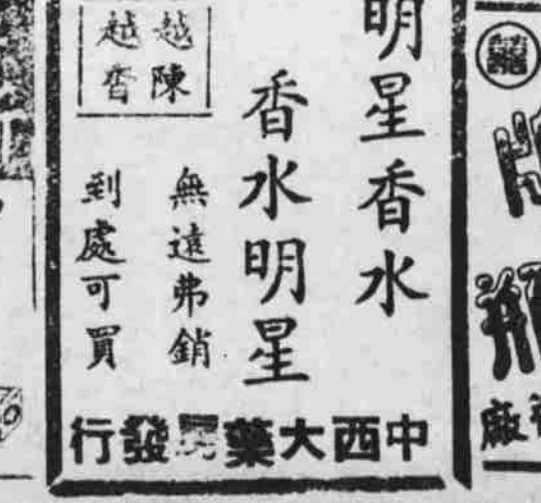 明星香水
香水明星
越陳
越香
無遠弗銷
到處可買
中西大藥房發行
廠